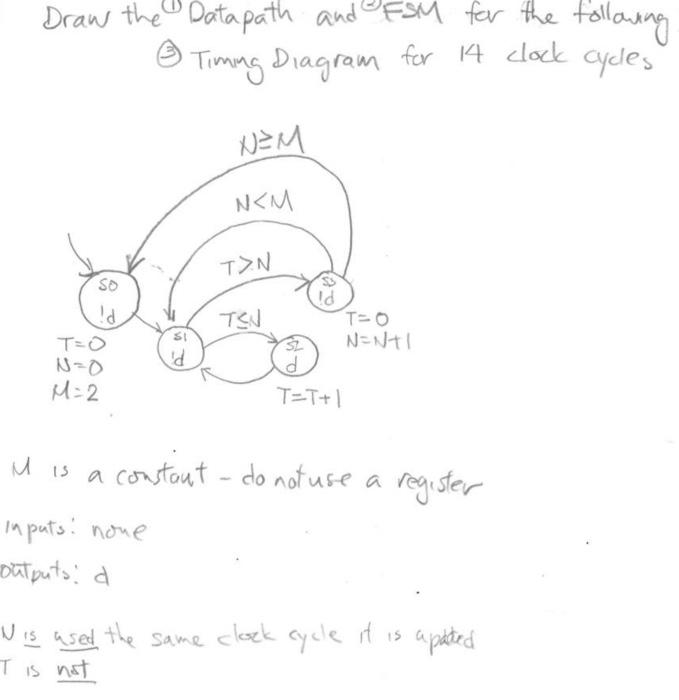 Draw the ① Datapath and ② FSM for the following
③ Timing Diagram for 14 clock cycles
N≥M
N<M
T>N
S0
!d
T=0
N=0
M=2
S1
!d
T≤N
S2
d
T=T+1
S3
!d
T=0
N=N+1
M is a constant - do not use a register
inputs: none
outputs: d
N is used the same clock cycle it is updated
T is not